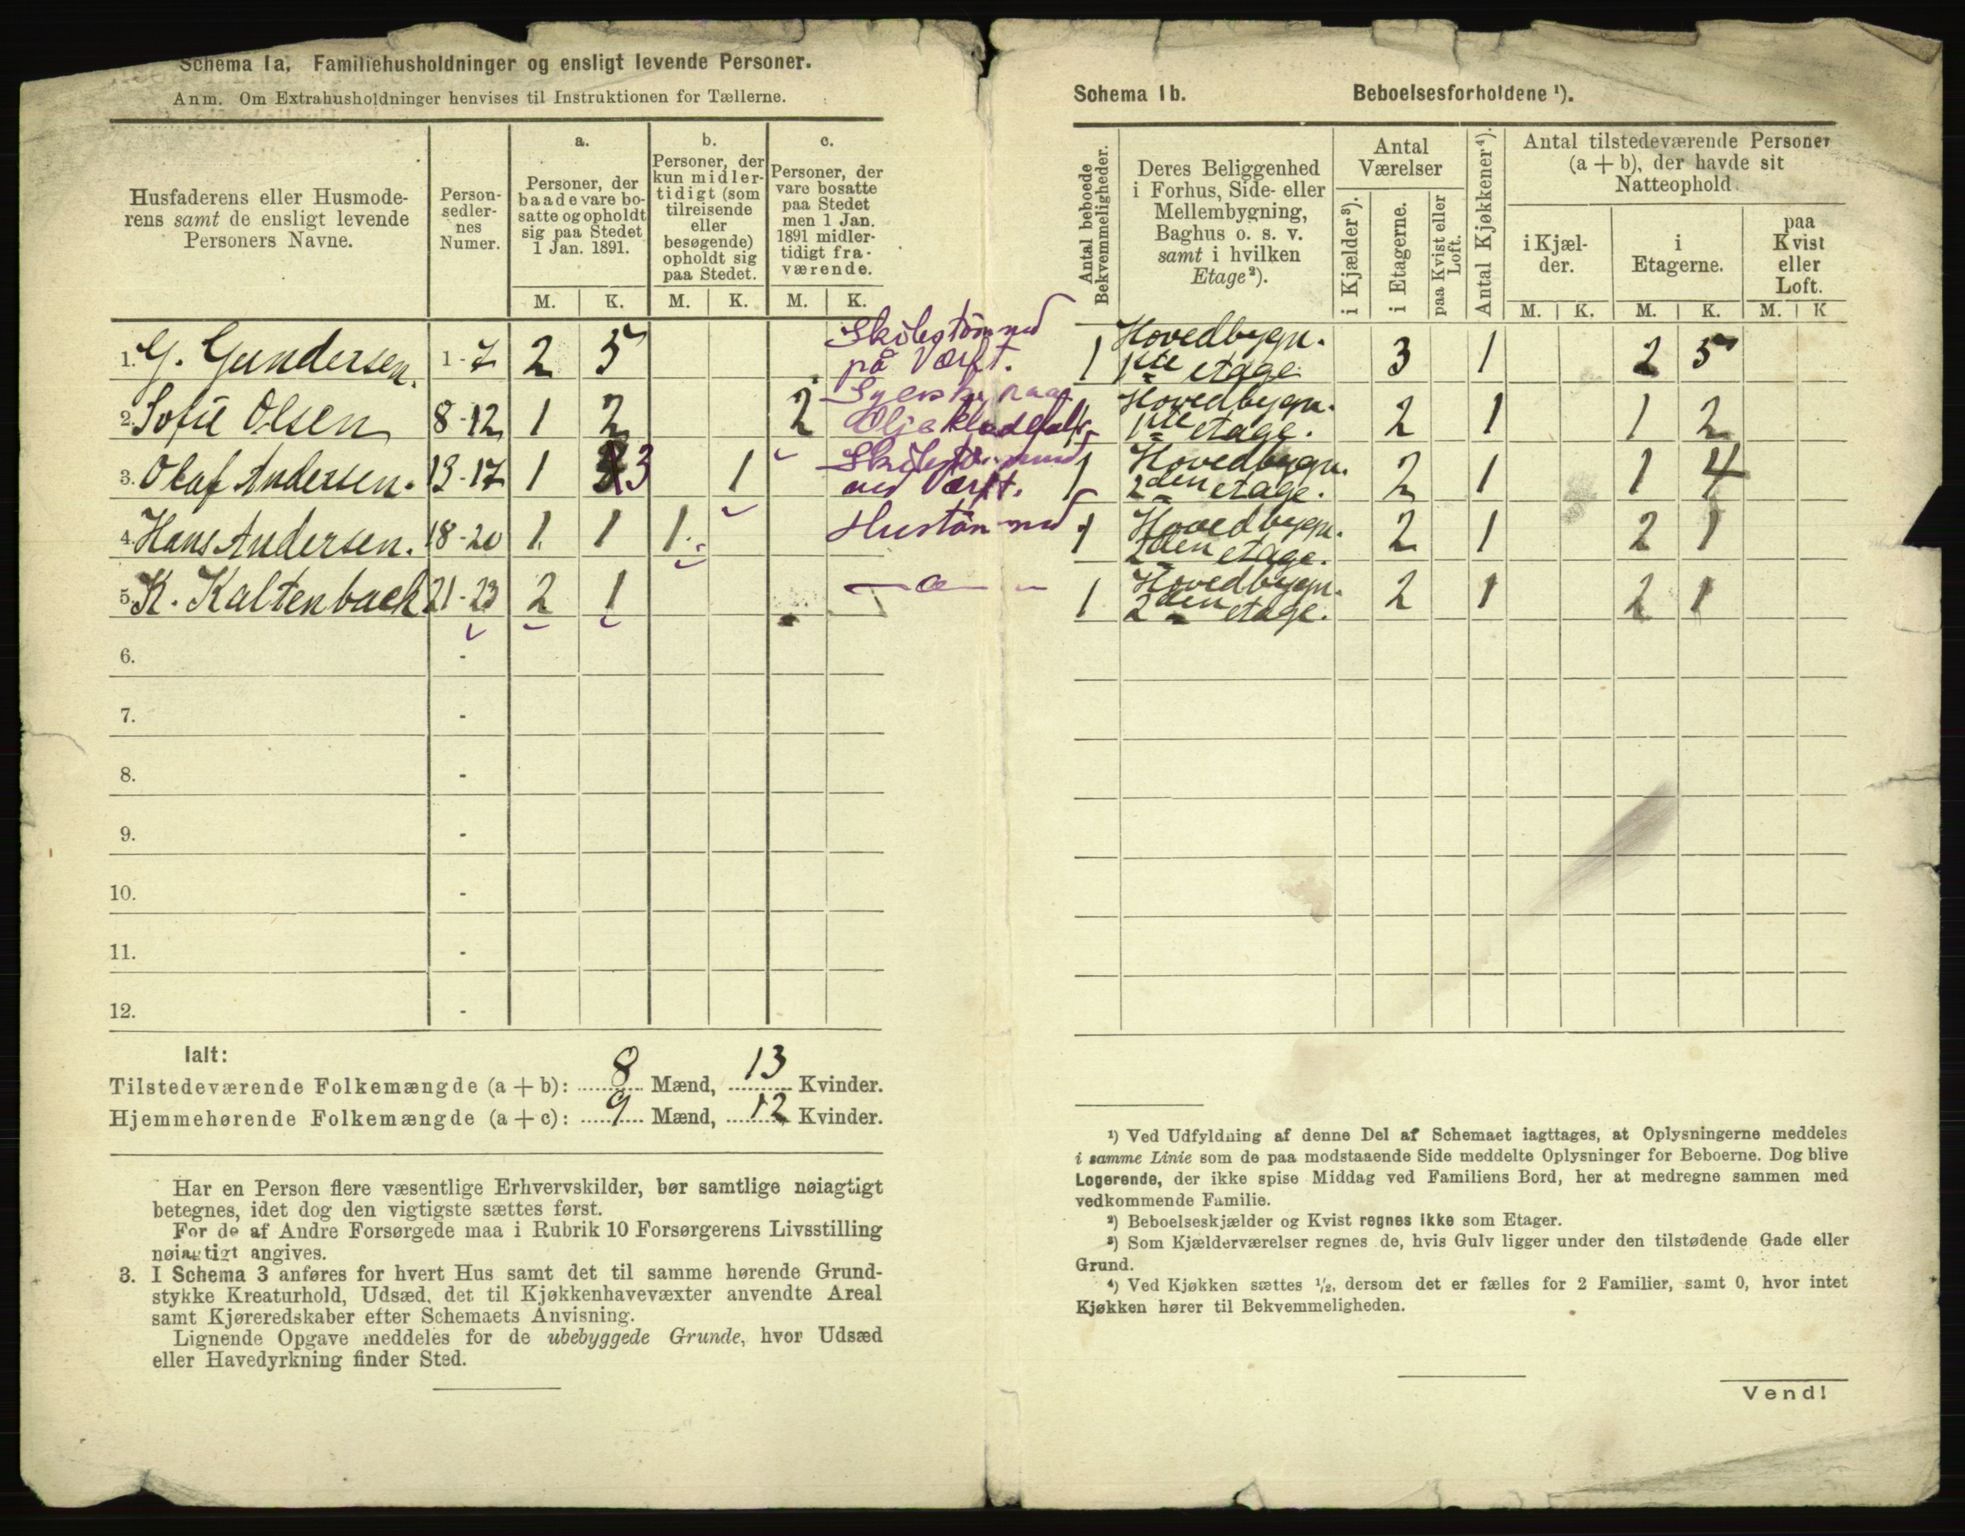 Schema 1a. Familiehusholdninger og ensligt levende Personer.
Anm. Om Extrahusholdninger henvises til Instruktionen for Tællerne.
Husfaderens eller Husmoderens samt de ensligt levende Personers Navne.
Personsedlernes Numer.
a. Personer, der baade vare bosatte og opholdt sig paa Stedet 1 Jan. 1891.
b. Personer, der kun midlertidigt (som tilreisende eller besøgende) opholdt sig paa Stedet.
c. Personer, der vare bosatte paa Stedet men 1 Jan. 1891 midlertidigt fraværende.
M. K. M. K. M. K.
1. G. Gundersen. 1-7 2 5 Skibstømmd på Værft.
2. Sofie Olsen 8-12 1 2 2
3. Olaf Andersen. 13-17 1 3 1 Værft.
4. Hans Andersen. 18-20 1 1 1 Hustømmd
5. K. Kaltenbach 21-23 2 1
6. -
7. -
8. -
9. -
10. -
11. -
12. -
Ialt:
Tilstedeværende Folkemængde (a + b): 8 Mænd, 13 Kvinder.
Hjemmehørende Folkemængde (a + c): 9 Mænd, 12 Kvinder.
Har en Person flere væsentlige Erhvervskilder, bør samtlige nøiagtigt
betegnes, idet dog den vigtigste sættes først.
For de af Andre Forsørgede maa i Rubrik 10 Forsørgerens Livsstilling
nøiagtigt angives.
3. I Schema 3 anføres for hvert Hus samt det til samme hørende Grund-
stykke Kreaturhold, Udsæd, det til Kjøkkenhavevæxter anvendte Areal
samt Kjøreredskaber efter Schemaets Anvisning.
Lignende Opgave meddeles for de ubebyggede Grunde, hvor Udsæd
eller Havedyrkning finder Sted.
Schema 1b. Beboelsesforholdene ¹).
Antal beboede Bekvemmeligheder.
Deres Beliggenhed i Forhus, Side- eller Mellembygning, Baghus o. s. v. samt i hvilken Etage²).
Antal Værelser
i Kjælder³).
i Etagerne.
paa Kvist eller Loft.
Antal Kjøkkener⁴).
Antal tilstedeværende Personer (a + b), der havde sit Natteophold
i Kjælder.
i Etagerne.
paa Kvist eller Loft.
M. K. M. K. M. K
1 Hovedbygn. 1ste etage. 3 1 2 5
Hovedbygn. 1ste etage. 2 1 1 2
1 Hovedbygn. 2den etage. 2 1 1 4
1 Hovedbygn. 2den etage. 2 1 2 1
1 Hovedbygn. 2den etage. 2 1 2 1
¹) Ved Udfyldning af denne Del af Schemaet iagttages, at Oplysningerne meddeles
i samme Linie som de paa modstaaende Side meddelte Oplysninger for Beboerne. Dog blive
Logerende, der ikke spise Middag ved Familiens Bord, her at medregne sammen med
vedkommende Familie.
²) Beboelseskjælder og Kvist regnes ikke som Etager.
³) Som Kjælderværelser regnes de, hvis Gulv ligger under den tilstødende Gade eller
Grund.
⁴) Ved Kjøkken sættes ½, dersom det er fælles for 2 Familier, samt 0, hvor intet
Kjøkken hører til Bekvemmeligheden.
Vend!